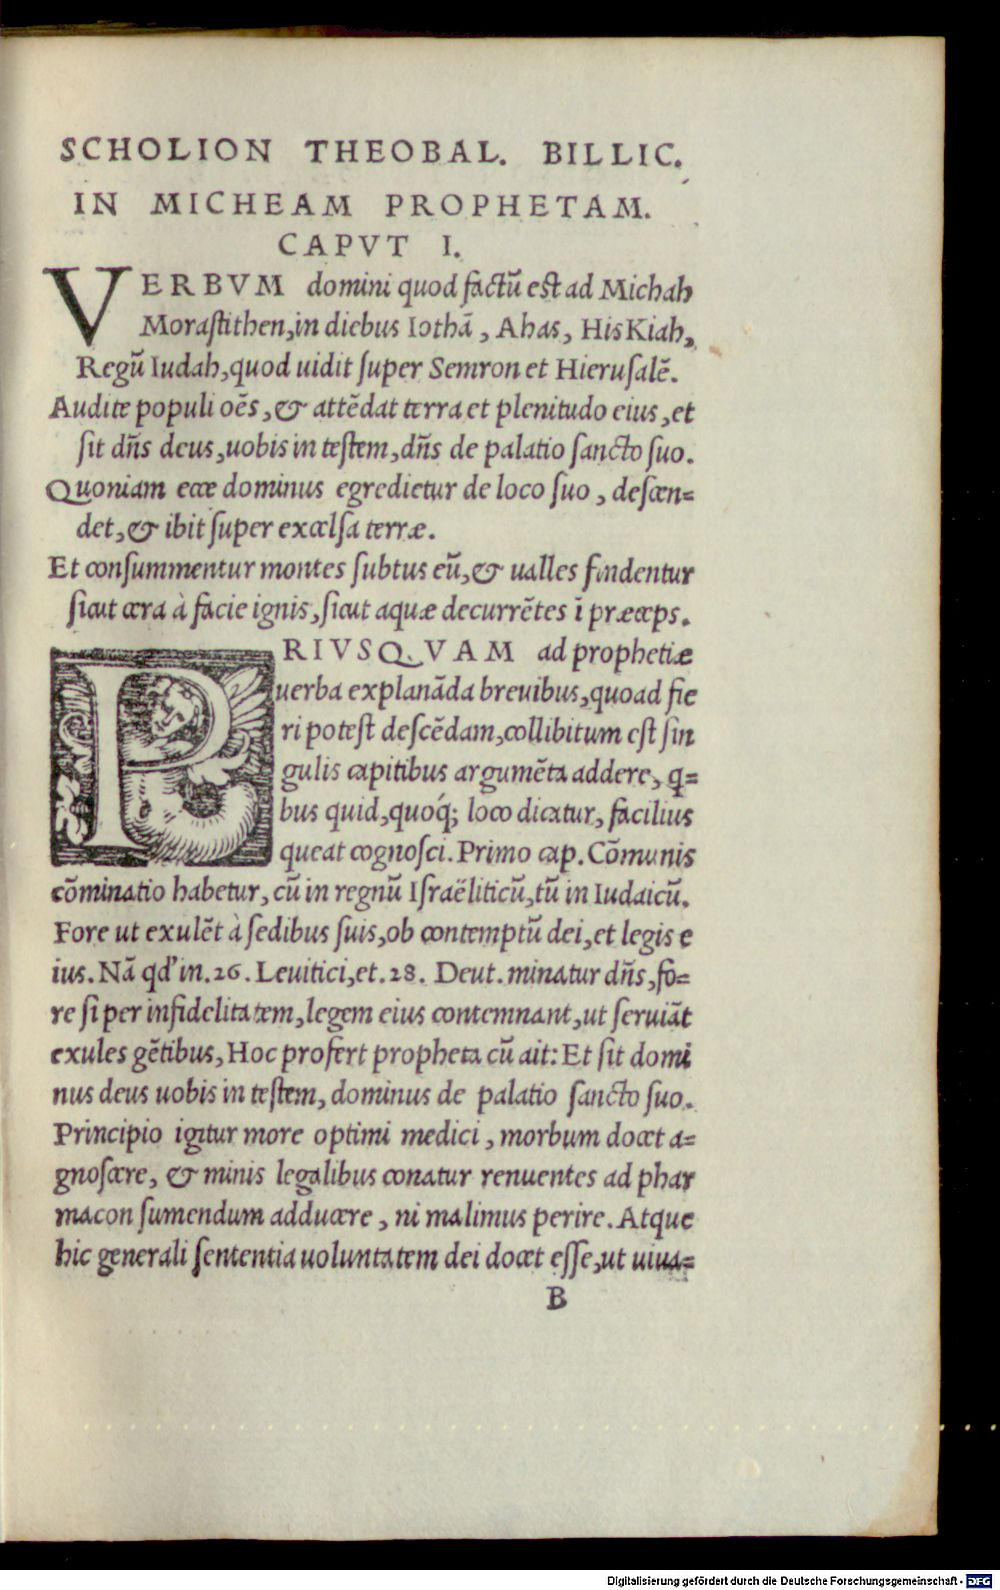 SCHOLION THEOBAL. BILLIC.
IN MICHEAM PROPHETAM.
CAPVT I.
VERBVM domini quod factũ est ad Michah
Moraſtithen,in diebus Iothã, Ahas, HisKiah,
Regũ Iudah,quod uidit ſuper Semron et Hieruſalẽ.
Audite populi oẽs,& attẽdat terra et plenitudo eius,et
ſit dñs deus,uobis in teſtem,dñs de palatio ſancto ſuo.
Quoniam ecce dominus egredietur de loco ſuo, deſcen=
det,& ibit ſuper excelſa terræ.
Et conſummentur montes ſubtus eũ,& ualles findentur
ſicut cera à facie ignis,ſicut aquæ decurrẽtes ĩ præceps.
PRIVSQVAM ad prophetiæ
uerba explanãda breuibus,quoad fie
ri poteſt deſcẽdam,collibitum eſt ſin
gulis capitibus argumẽta addere, q̃=
bus quid,quoq́; loco dicatur, facilius
queat cognoſci. Primo cap. Cõmunis
cõminatio habetur, cũ in regnũ Iſraëliticũ,tũ in Iudaicũ.
Fore ut exulẽt à ſedibus ſuis,ob contemptũ dei,et legis e
ius. Nã qd' in.26. Leuitici,et.28. Deut. minatur dñs,fo=
re ſi per infidelitatem,legem eius contemnant,ut ſeruiãt
exules gẽtibus, Hoc profert propheta cũ ait: Et ſit domi
nus deus uobis in teſtem, dominus de palatio ſancto ſuo.
Principio igitur more optimi medici, morbum docet a=
gnoſcere, & minis legalibus conatur renuentes ad phar
macon ſumendum adducere, ni malimus perire. Atque
hic generali ſententia uoluntatem dei docet eſſe,ut uiua=
B
Digitalisierung gefördert durch die Deutsche Forschungsgemeinschaft - DFG